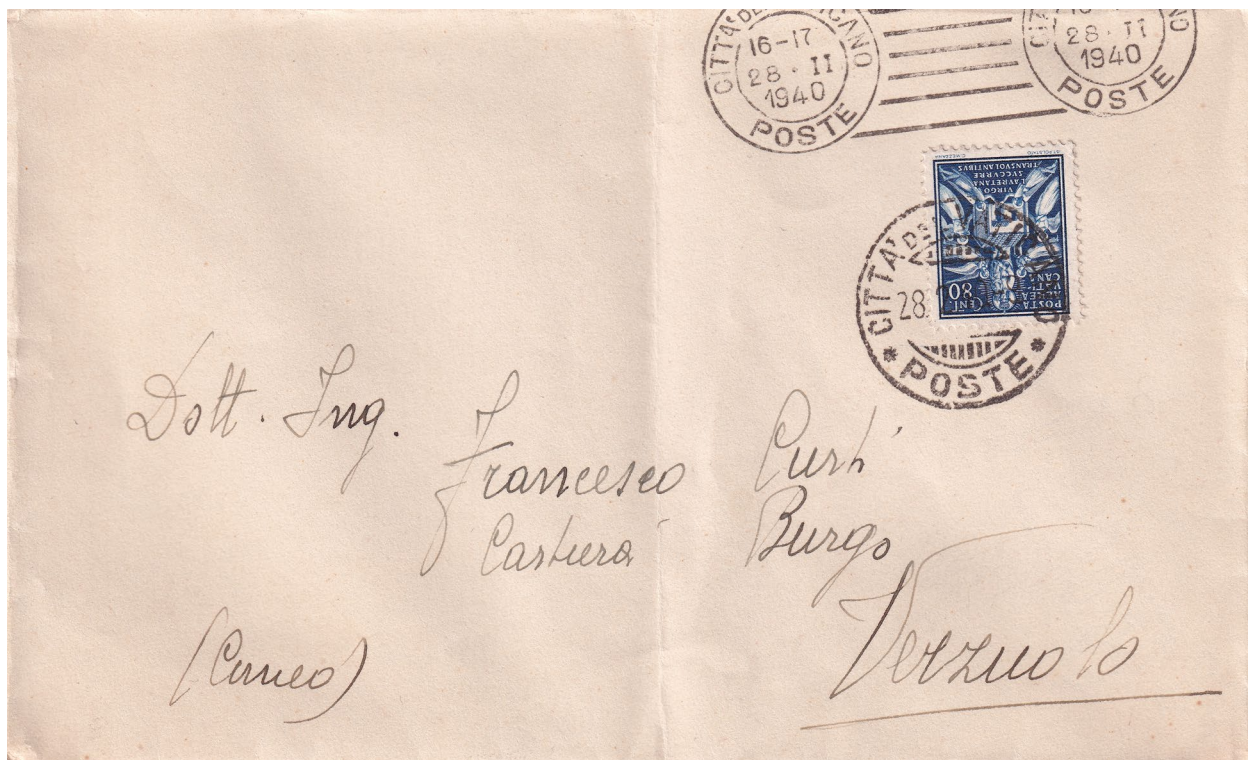 CITTA' DEL VATICANO
16-17
28·II
1940
POSTE
28·II
1940
POSTE
POSTA
AEREA
VATI-
CANA
CENT 80
VIRGO
LAVRETANA
SVCCVRRE
TRANSVOLANTIBVS
CITTA' DEL VATICANO
28
POSTE
Dott. Ing.
Francesco Curti
Cartiera Burgo
Verzuolo
(Cuneo)